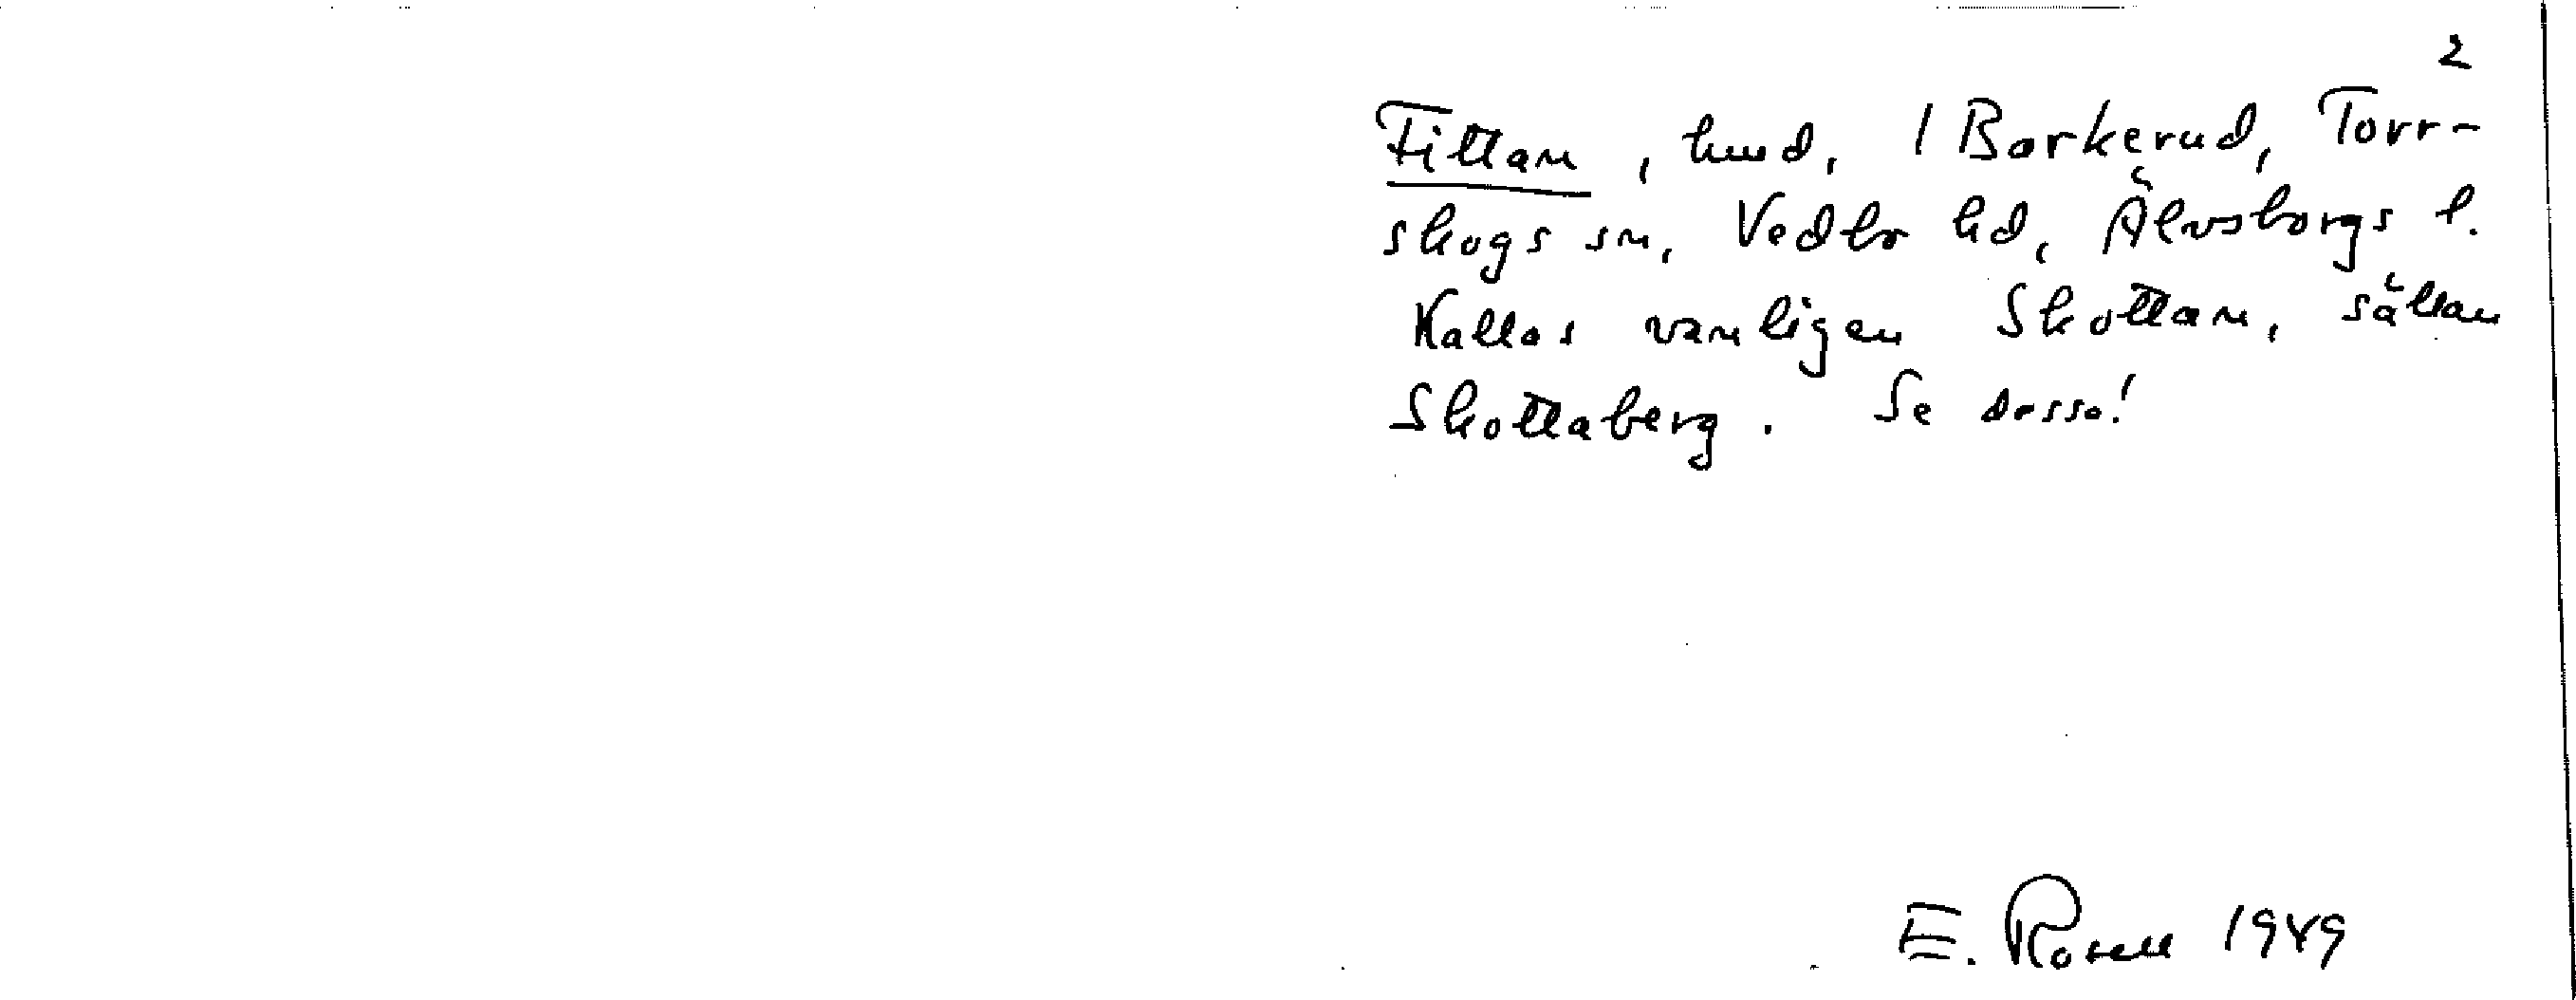 2
Fittan, hmd, 1 Borkerud, Torr-
skogs sn, Vedbo hd, Älvsborgs l.
Kallas vanligen Skottan, sällan
Skottaberg. Se dessa!
E. Rosell 1949